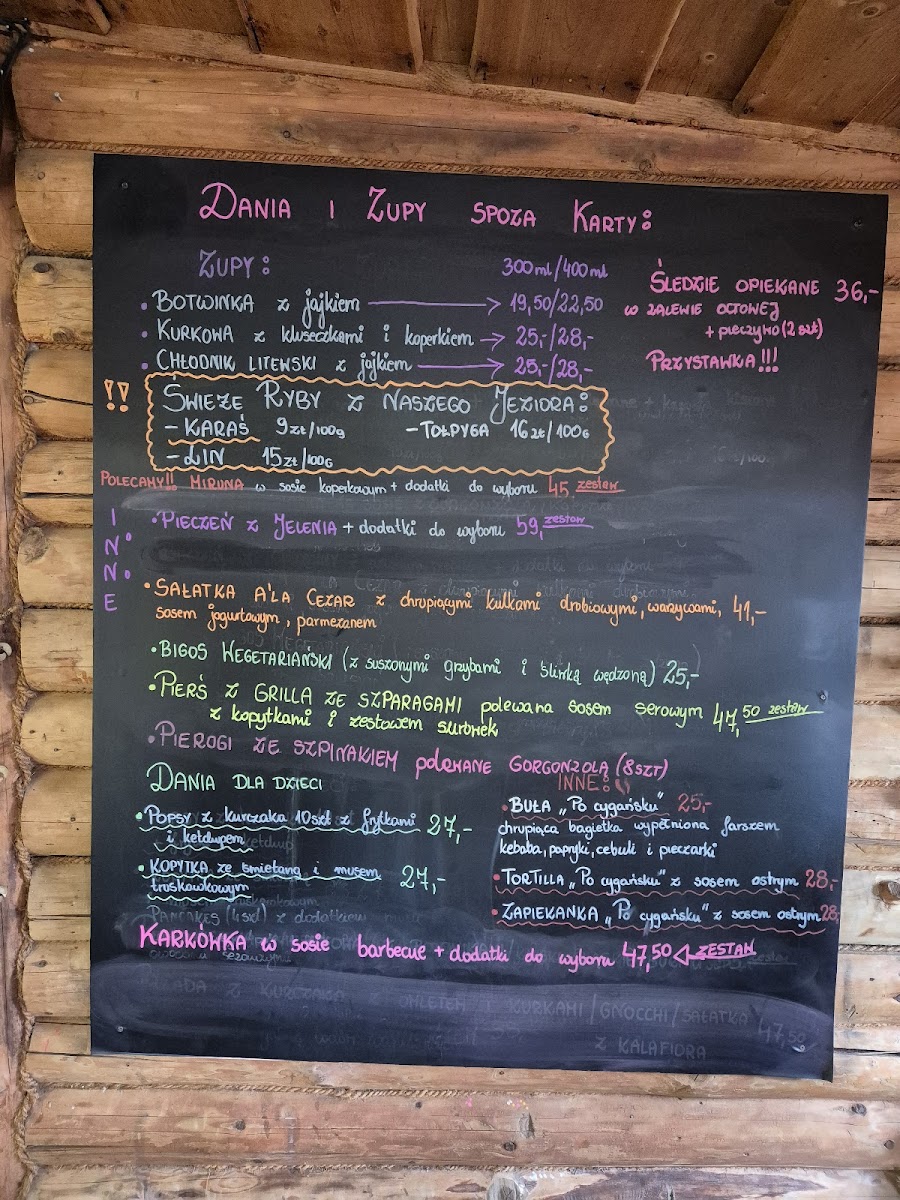 DANIA I ZUPY SPOZA KARTY:
ZUPY: 300ml/400ml
• BOTWINKA z jajkiem → 19,50/22,50
• KURKOWA z kluseczkami i koperkiem → 25,-/28,-
• CHŁODNIK LITEWSKI z jajkiem → 25,-/28,-
ŚLEDZIE OPIEKANE 36,-
W ZALEWIE OCTOWEJ
+ pieczywo (2 szt)
PRZYSTAWKA!!!
!! ŚWIEŻE RYBY Z NASZEGO JEZIORA:
- KARAŚ 9zł/100g - TOŁPYGA 16zł/100G
- LIN 15zł/100G
POLECAMY!!! MIRUNA w sosie koperkowym + dodatki do wyboru 45,- zestaw
INNE:
• PIECZEŃ Z JELENIA + dodatki do wyboru 59,- zestaw
• SAŁATKA A'LA CEZAR z chrupiącymi kulkami drobiowymi, warzywami, 41,-
sosem jogurtowym, parmezanem
• BIGOS WEGETARIAŃSKI (z suszonymi grzybami i śliwką wędzoną) 25,-
• PIERŚ Z GRILLA ZE SZPARAGAMI polewana sosem serowym 47,50 zestaw
z kopytkami i zestawem surówek
• PIEROGI ZE SZPINAKIEM polewane GORGONZOLĄ (8SZT)
DANIA DLA DZIECI
• POPSY z kurczaka 10szt z frytkami 27,-
i ketchupem
• KOPYTKA ze śmietaną i musem 27,-
truskawkowym
INNE:
• BUŁA „Po cygańsku" 25,-
chrupiąca bagietka wypełniona farszem
kebaba, papryki, cebuli i pieczarki
• TORTILLA „Po cygańsku" z sosem ostrym 28,-
• ZAPIEKANKA „Po cygańsku" z sosem ostrym 28,-
PANCAKES (4szt) z dodatkiem
KARKÓWKA w sosie barbecue + dodatki do wyboru 47,50 ZESTAW
Z KURCZAKA Z OMLETEM I KURKAMI/GNOCCHI/SAŁATKA 47,50
Z KALAFIORA